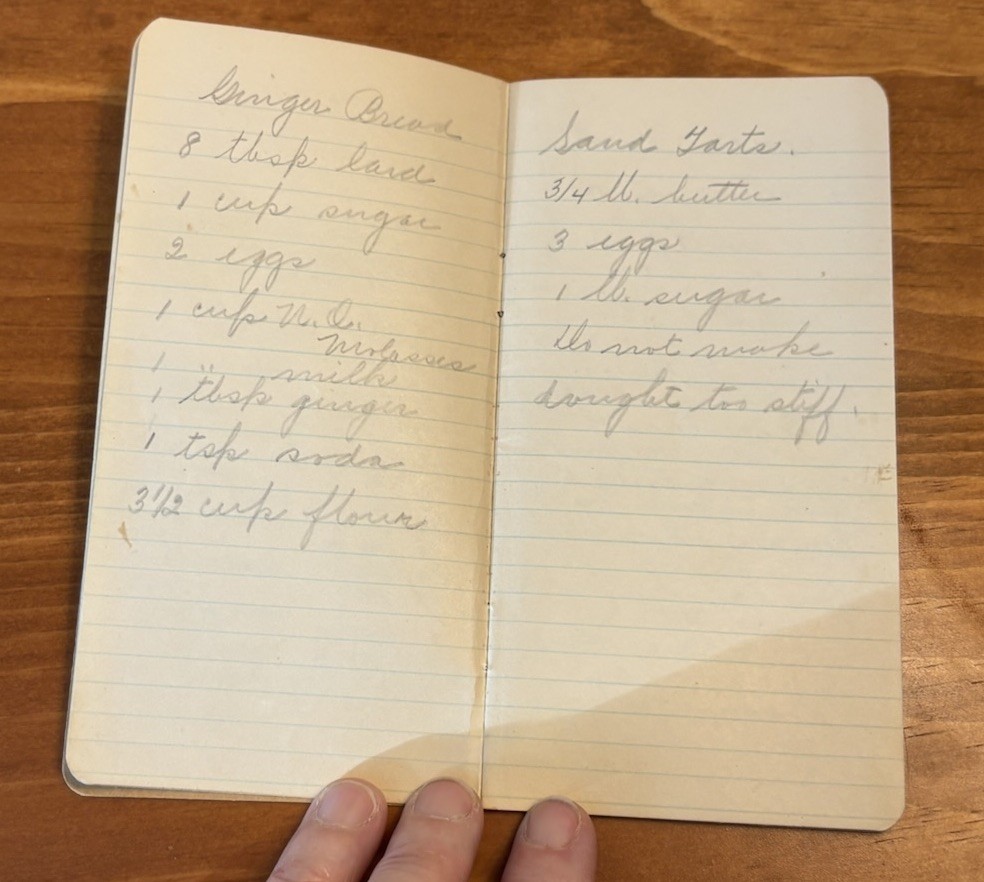 Ginger Bread
8 tbsp lard
1 cup sugar
2 eggs
1 cup N.O.
Molasses
1 " milk
1 tbsp ginger
1 tsp soda
3 1/2 cup flour
Sand Tarts.
3/4 lb. butter
3 eggs
1 lb. sugar
Do not make
dought too stiff.